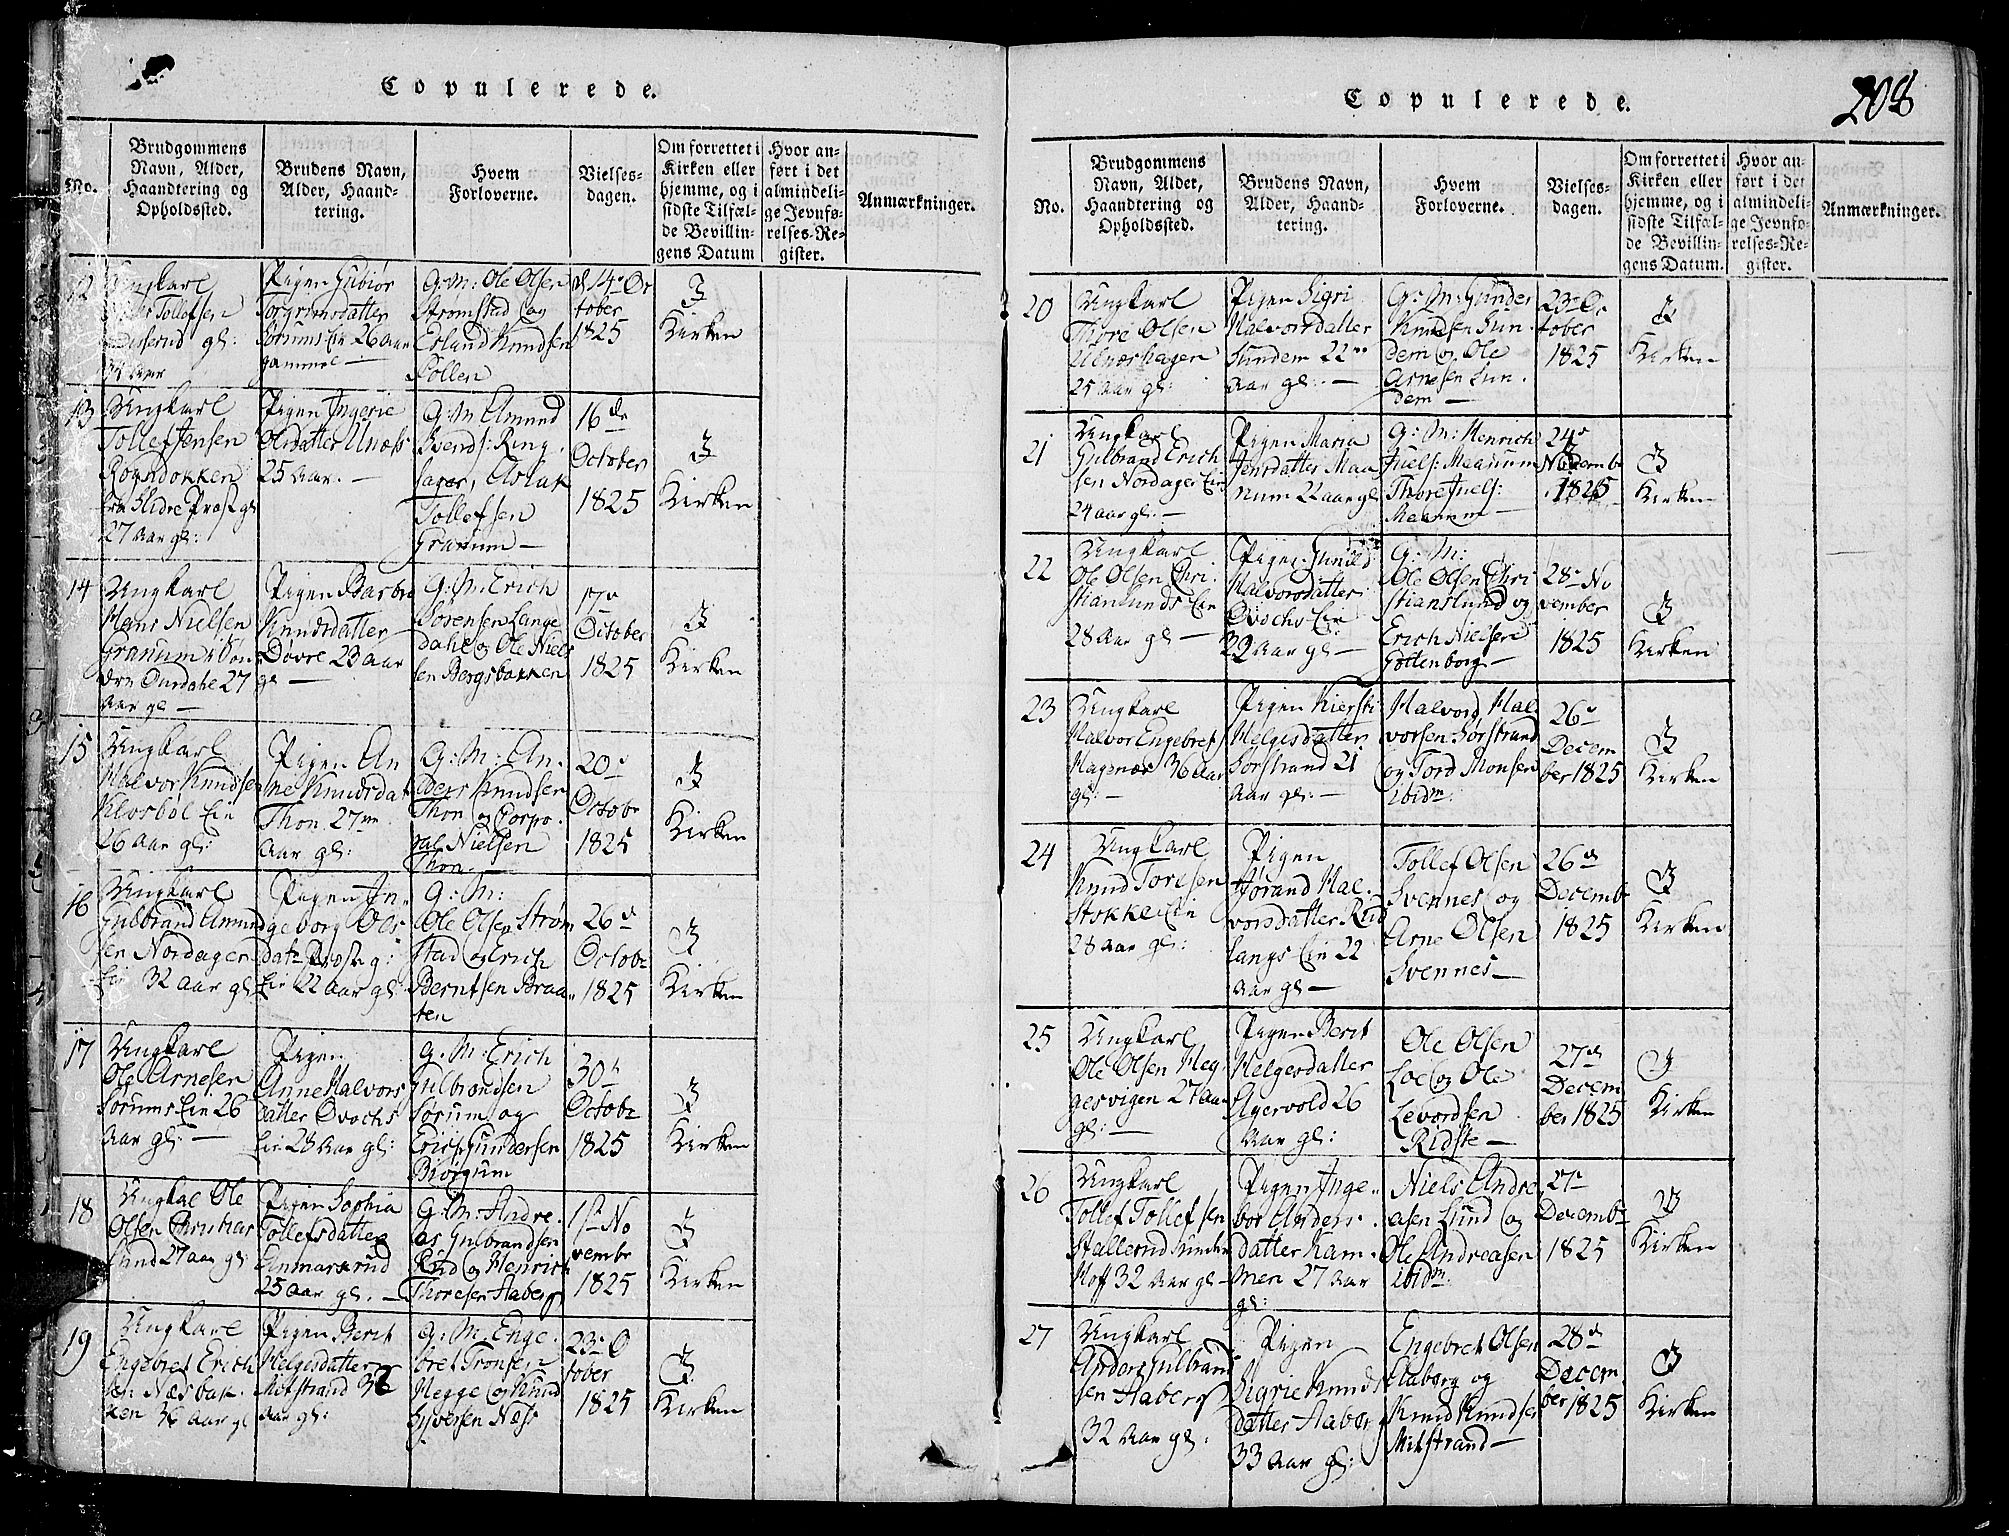 Copulerede.
No.
Brudgommens
Navn, Alder,
Haandtering og
Opholdssted.
Brudens Navn,
Alder, Haand-
tering.
Hvem
Forloverne.
Vielses-
dagen.
Om forrettet i
Kirken eller
hjemme, og i
sidste Tilfæl-
de Bevillin-
gens Datum
Hvor an-
ført i det
almindeli-
ge Jevnfø-
relses-Re-
gister.
Anmærkninger.
12
Ungkarl
Tollefsen
gl:
Aar
Pigen Gubiör
Torgrimsdatter
Sørums Ein 26 Aar
gammel —
G: M: Ole Olsen
Strømstad og
Erland Knudsen
Sollen
d 14de Oc
tober
1825
I
Kirken
13
Ungkarl
Tollef Jensen
fra Slidre Præst gl
27 Aar gl:
Pigen Ingerie
Olsdatter Unæss
25 Aar. —
G: M: Amund
Svends: Ring.
sager, Aslak
Tollefsen
Granum —
16de
October
1825
I
Kirken
14
Ungkarl
Hans Nielsen
Granum i Søn
dre Ourdahl 27
Aar gl —
Pigen Barbro
Knudsdatter
Dovre 23 Aar
gl —
G: M: Erich
Sørensen Lange
dahl og Ole Niels
sen Bergsbakken
17de
October
1825
I
Kirken
15
Ungkarl
Halvor Knudsen
Klosbøl Ein
26 Aar gl:
Pigen An
ne Knudsdat
Thon 27
Aar gl:
G: M: An.
ders Knudsen
Thon og Corpo.
ral Nielsen
Thon
20de
Octobr
1825
I
Kirken
16
Ungkarl
Gulbrand Amund
sen Nordagen
Ein 32 Aar gl
Pigen In-
geborg Ols
datr Præste g:
Ein 22 Aar gl
G: M:
Ole Olsen Strøm
stad og Erich
Berntsen Braa
ten
26de
Octobr
1825
I
Kirken
17
Ungkarl
Ole Arnesen
Sørums Ein 26
Aar gl: —
Pigen
Anne Halvors
datter Qvochs
Ein 28 Aar gl:
G: M: Erich
Gulbrandsen
Sørum og
Erich Gundersen
Biørgum
30te
Octobr
1825
I
Kirken
18
Ungkal Ole
Olsen Christian
lund 27 aar gl
Pigen Sophia
Tollefsdatter
Enmarkrud
25 aar gl. —
G: M: Andre.
as Gulbrandsen
Rud og Henrich
Thoresen Aaberg
1ste No
vembr
1825
I
Kirken
19
Ungkarl
Engebret Erich
sen Næsbak.
ken 36 aar gl
Pigen Berit
Helgesdatter
Mitstrand 32
Aar gl:
G: M: Enge.
bret Tronsen
Hegge og Knud
Syversen Næss
23de O
tober
1825
I
Kirken
Copulerede.
208
No.
Brudgommens
Navn, Alder,
Haandtering og
Opholdssted.
Brudens Navn,
Alder, Haand-
tering.
Hvem
Forloverne.
Vielses-
dagen.
Om forrettet i
Kirken eller
hjemme, og i
sidste Tilfæl-
de Bevillin-
gens Datum.
Hvor an-
ført i det
almindeli-
ge Jevnfø-
relses-Re-
gister.
Anmærkninger.
20
Ungkarl
Thore Olsen
Ulnæshagen
25 Aar gl:
Pigen Sigri
Halvorsdatter
Sundem 22
Aar gl: —
G: M: Gunder
Knudsen Sun
dem og Ole
Arnesen Sun.
dem —
23de Oc
tober
1825
I
Kirken
21
Ungkarl
Gulbrand Erich
sen Nordager Ein
24 aar gl: —
Pigen Maria
Jensdatter Maa
num 22 aar gl
G: M: Henrich
Juels: Maanum
Thore Juels:
Maanum —
24de
Novemb
1825
I
Kirken
22
Ungkarl
Ole Olsen Chri.
stianlunds Ein
28 Aar gl —
Pigen Gunild
Halvorsdatter
Qvochs Ein
32 Aar gl —
G: M:
Ole Olsen Chri
stianslund og
Erich Nielsen
Gottenborg —
28de No
vember
1825
I
Kirken
23
Ungkarl
Halvor Engebret
Hagenæs 36 Aar
gl: —
Pigen Kiersti
Helgesdatter
Sørstrand 21
Aar gl: —
Halvord Hal
vorsen Sørstrand
og Tord Thonsen
ibidm.
26de
Decem
ber 1825
I
Kirken
24
Ungkarl
Knud Toresen
Stokke Ein
28 Aar gl:
Pigen
Jørand Hal.
vorsdatter Rud
langs Ein 22
Aar gl —
Tollef Olsen
Svennes og
Arne Olsen
Svennes —
26de
Decemb
1825
I
Kirken
25
Ungkarl
Ole Olsen Heg
gesvigen 27 Aar
gl: —
Pigen Berit
Helgesdatter
Agervold 26
Aar gl:
Ole Olsen
Loe og Ole
Levordsen
Ridste —
27de
Decem
ber 1825
I
Kirken
26
Ungkarl
Tollef Tollefsen
Stallerud under
Hoff 32 Aar gl —
Pigen Inge.
bor Anders.
datter Kam.
men 27 Aar
gl:
Niels Andre
asen Lund og
Ole Andreasen
ibidm.
27de
Decembr
1825
I
Kirken
27
Ungkarl
Anders Gulbrand
sen Aaberg
32 Aar gl.
Pigen
Sigrie Knuds
datter Aaberg
33 Aar gl:
Engebret Olsen
Elaborg og
Knud Knudsen
Mitstrand —
28de
Decem.
ber 1825
I
Kirken